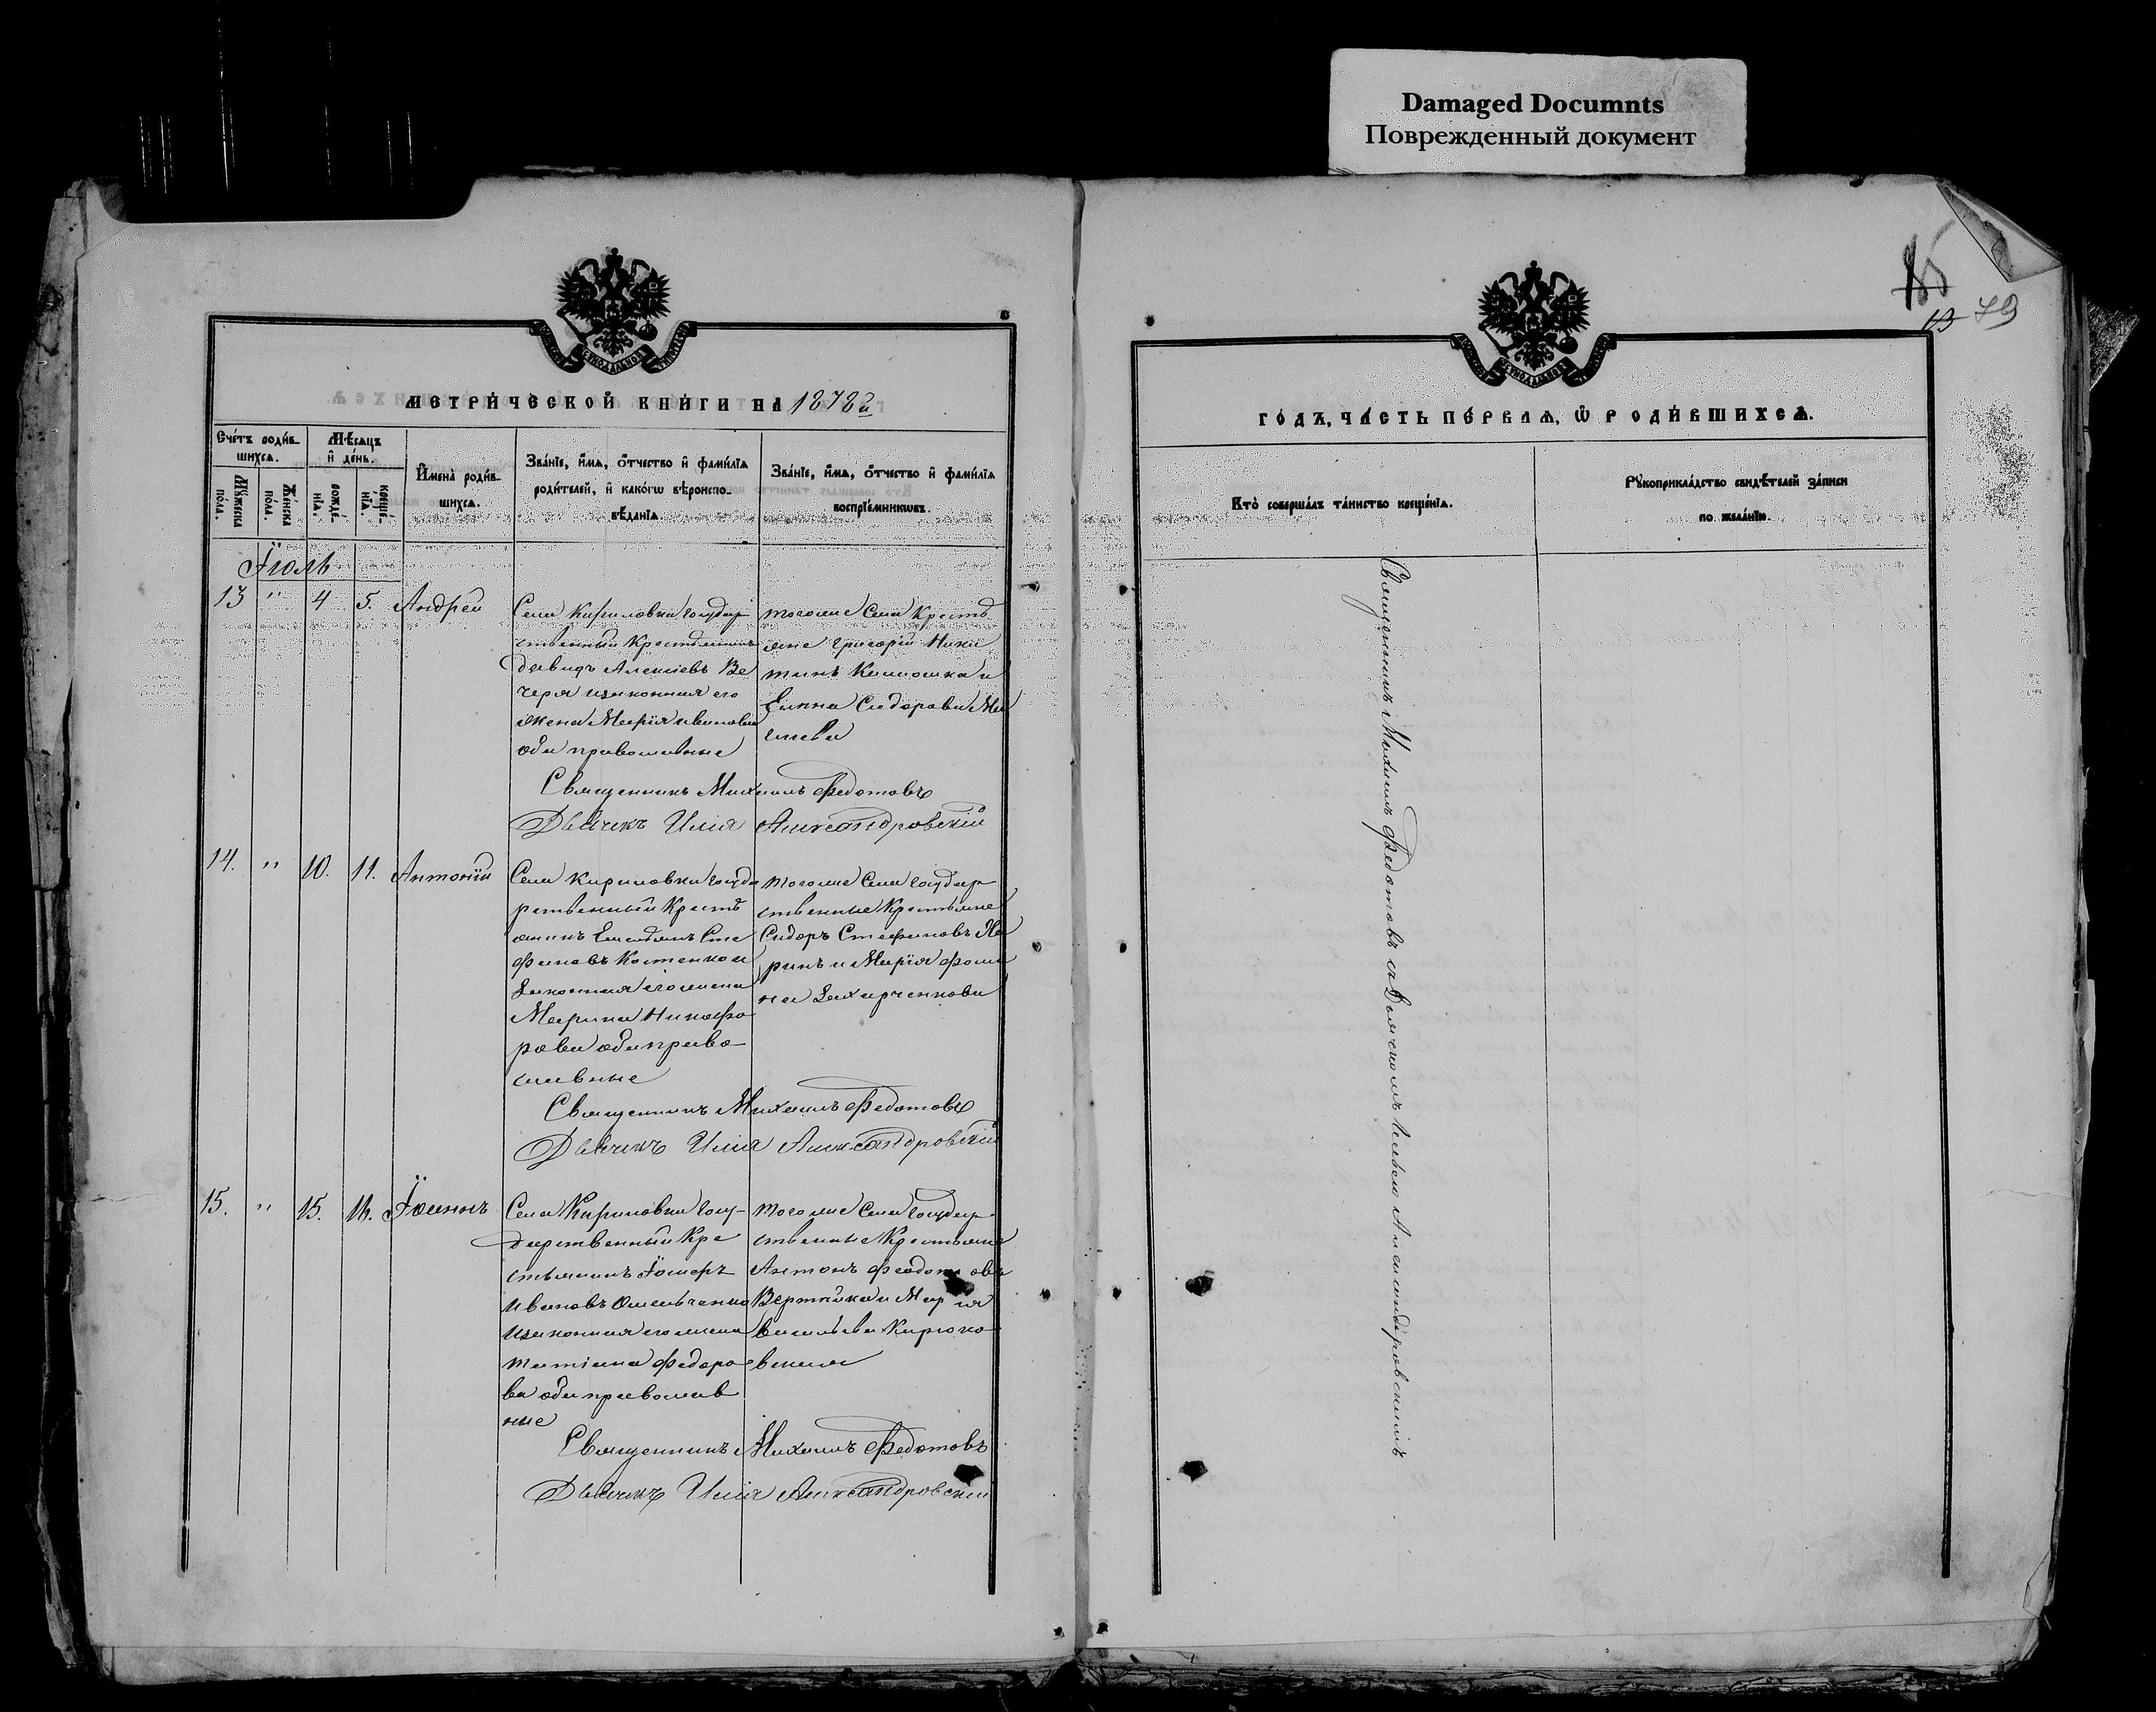 Damaged Documnts
Поврежденный документ
МЕТРИ́ЧЕСКОЙ КНИ́ГИ НА 1878й
Сче́тъ роди́в-
шихсѧ.
Мѣсѧцъ
и҆ де́нь.
Мꙋ́жеска
по́ла.
Же́нска
по́ла.
рожде́-
нїѧ.
креще́-
нїѧ.
И҆мена̀ роди́в-
шихсѧ.
Зва́нїе, и҆́мѧ, ѻ҆́тчество и҆ фами́лїѧ
роди́телей, и҆ како́гѡ вѣроиспо-
вѣ́данїѧ.
Зва́нїе, и҆́мѧ, ѻ҆́тчество и҆ фами́лїѧ
воспрїе́мникѡвъ.
Іюль
13 " 4 5. Андрей
Села Кириловки государ
ственный Крестьянинъ
Давидъ Алексіевъ Ве
черя изаконная его
жена Марія иванова
оба православные
тогоже Села Крестья
яне Григорій Ники
тинъ
Елена Сидорова
Священникъ Михаилъ Федотовъ
Дьячикъ Илія Александровскій
14. " 10. 11. Антоній
Села Кириловки госуда
рственный Кресть
янинъ Емельянъ Сте
фановъ Костенко и
Законная его жена
Марина Никифо
рова оба право-
славные
тогоже Села государ
ственные Крестьяне
Сидоръ Стефановъ
и Марія Фоми
на Захарченкова
Священникъ Михаилъ Федотовъ
Дьячикъ Илія Александровскій
15. " 15. 16. Іоаннъ
Села Кириловки госу-
дарственный Кре
стьянинъ
Ивановъ Омельченко
изаконная его жена
татіана Федоро
ва оба православ
ные
тогоже Села государ
ственные Крестьяне
Антонъ Феодотовъ
и Марія
васильева Кирюко
вская
Священникъ Михаилъ Федотовъ
Дьячикъ Илія Александровскій
15
13 79
ГО́ДЪ, ЧА́СТЬ ПЕ́РВАѦ, Ѽ РОДИ́ВШИХСѦ.
Кто̀ соверша́лъ та́инство креще́нїѧ.
Рꙋкоприкла́дство свидѣ́телей за́писи
по жела́нїю.
Священникъ Михаилъ Федотовъ съ Дьячкомъ Ильею Александровскимъ